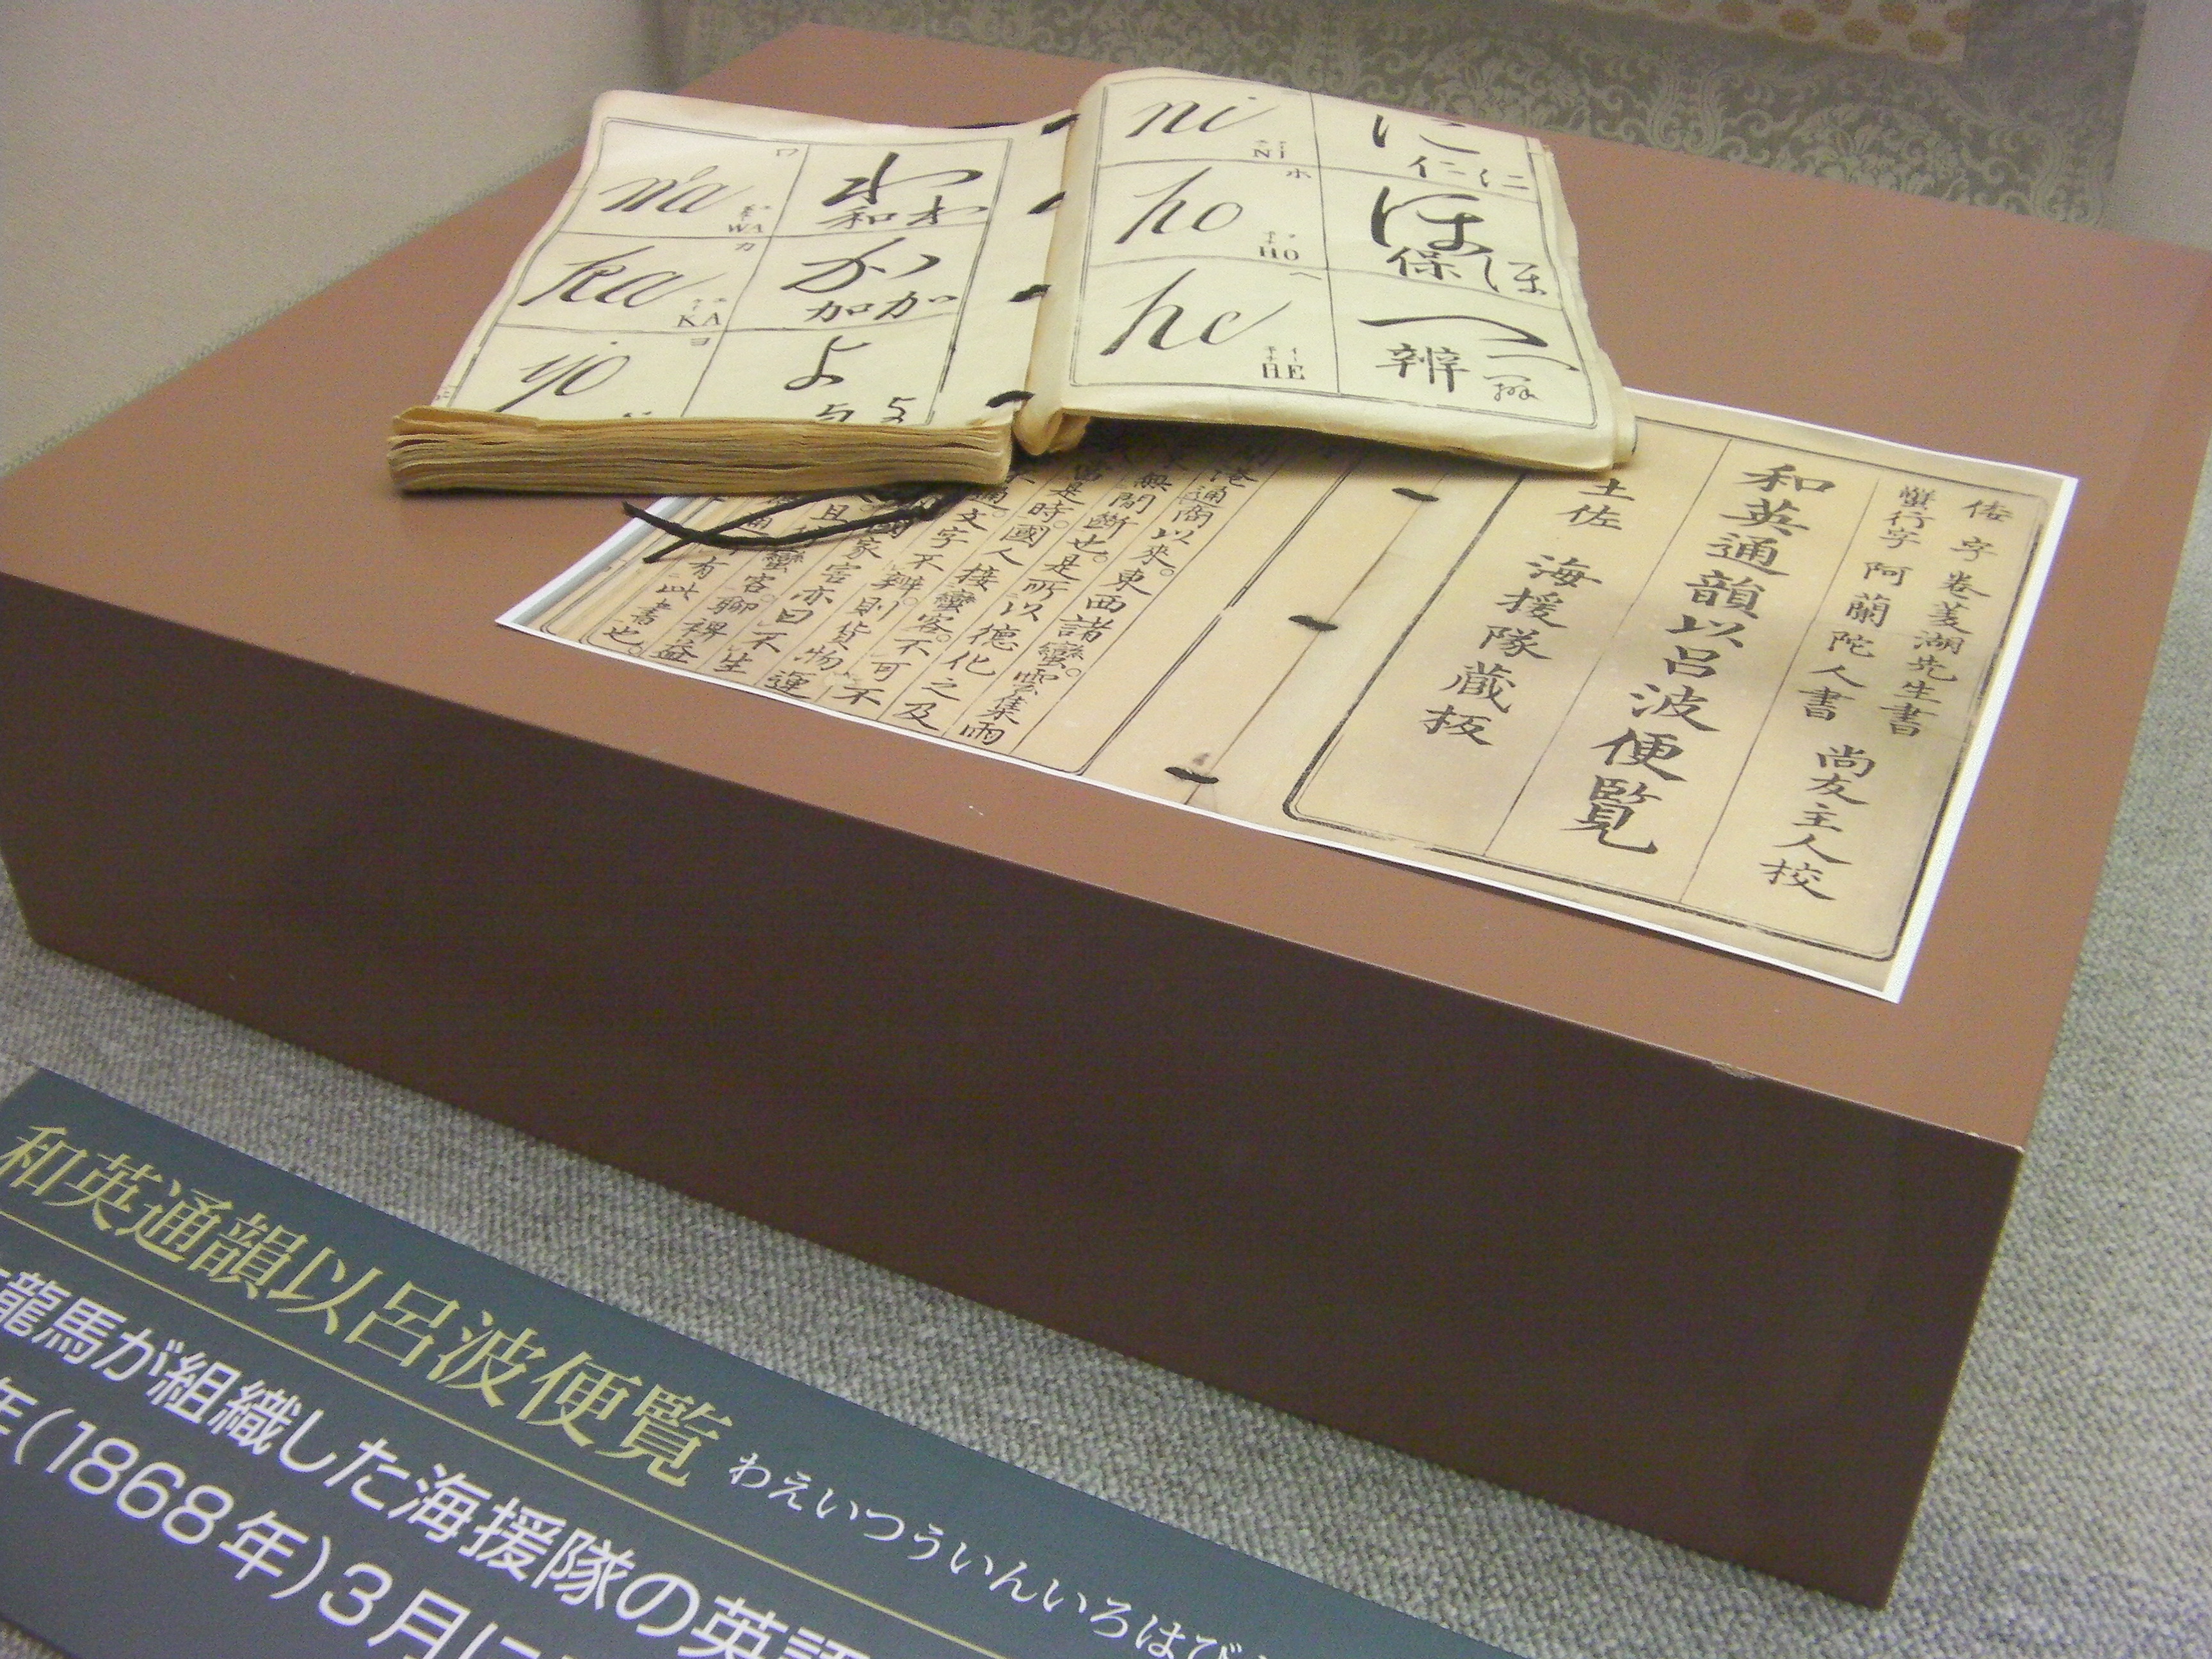 ni
NI
に
仁 に
ホ
ho
HO
ほ
保 ほ
ヘ
he
HE
へ
辨 へ
ワ
wa
WA
わ
和 わ
カ
ka
KA
か
加 か
ヨ
yo
よ
与
倭字卷菱湖先生書
蠻行字阿蘭陀人書 尚友主人校
和英通韻以呂波便覧
土佐 海援隊蔵板
港通商以來。東西諸蠻。雲集雨
無間斷也。是所以德化之及
當是時。國人接蠻客。不可不
通。文字不辨。則貨物不運
家害亦曰不生
蠻客。聊裨益
有此書也。
和英通韻以呂波便覧 わえいつういんいろはび
龍馬が組織した海援隊の英語
年(1868年)3月に